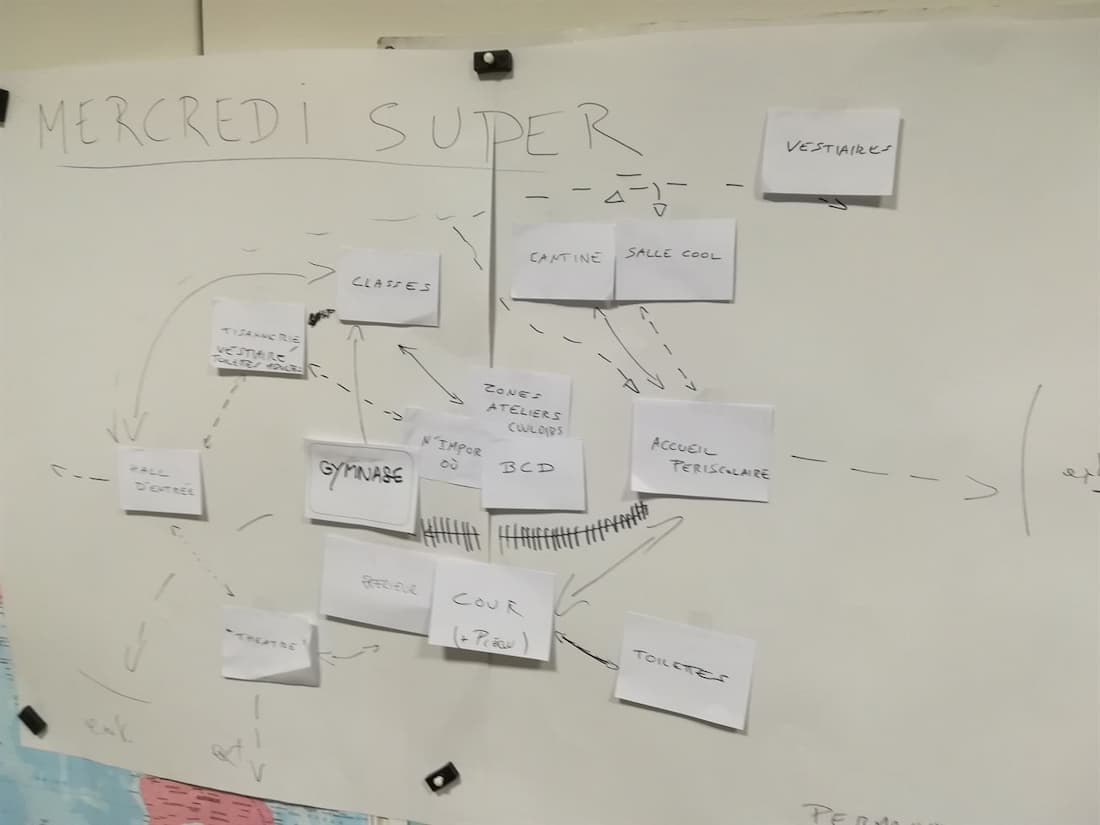 MERCREDI SUPER
VESTIAIRES
CANTINE
SALLE COOL
CLASSES
TISANNERIE
VESTIAIRE
TOILETTES ADULTES
ZONES
ATELIERS
COULOIRS
N'IMPOR
OÙ
BCD
ACCUEIL
PERISCOLAIRE
GYMNASE
HALL
D'ENTRÉE
EXTERIEUR
COUR
(+ PRÉAU)
"THEATRE"
TOILETTES
ext